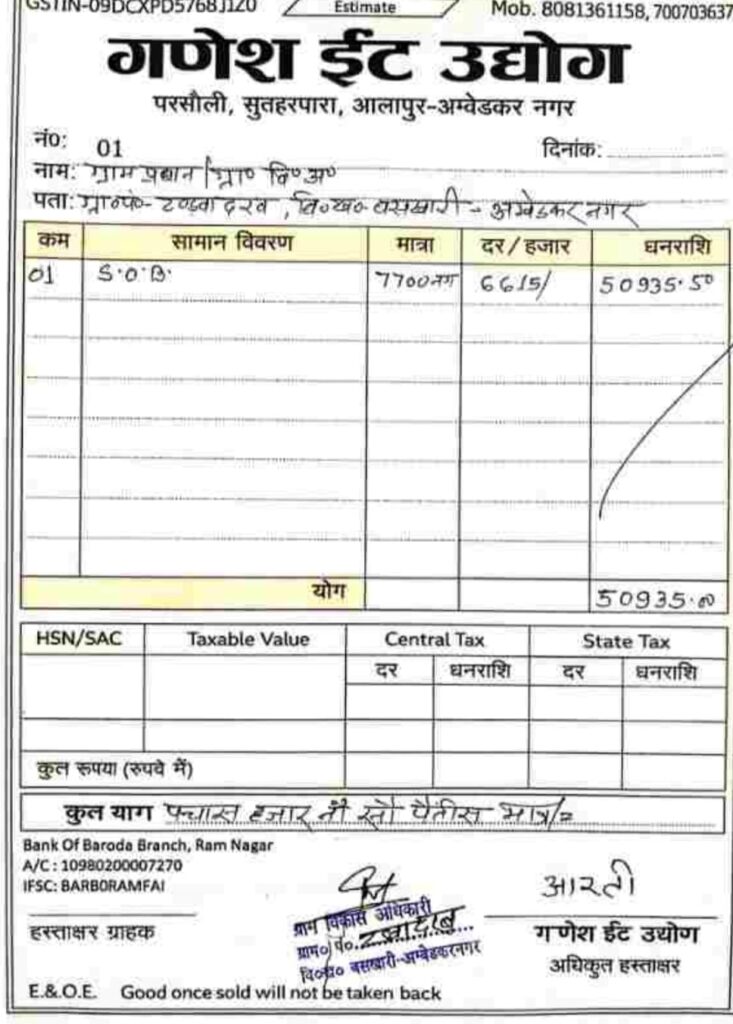 GSTIN-09DCXPD5768J1Z0 Estimate Mob. 8081361158, 700703637
गणेश ईट उद्योग
परसौली, सुतहरपारा, आलापुर-अम्वेडकर नगर
नं०: 01 दिनांक:
नाम: ग्राम प्रधान/ग्रा० वि० अ०
पता: ग्रा०पं०- टण्डवा दरब, वि०ख० बसखारी - अम्बेडकर नगर
कम सामान विवरण मात्रा दर/हजार धनराशि
01 S.O.B. 7700 नग 6615/ 50935.50
योग 50935.00
HSN/SAC Taxable Value Central Tax State Tax
दर धनराशि दर धनराशि
कुल रूपया (रुपवे में)
कुल याग पचास हजार नौ सौ पैंतीस मात्र/=
Bank Of Baroda Branch, Ram Nagar
A/C : 10980200007270
IFSC: BARB0RAMFAI
आरती
हस्ताक्षर ग्राहक
ग्राम विकास अधिकारी
ग्राम० पं०
वि०ख० बसखारी-अम्बेडकरनगर
गणेश ईट उद्योण
अधिकुत हस्ताक्षर
E.&O.E. Good once sold will not be taken back